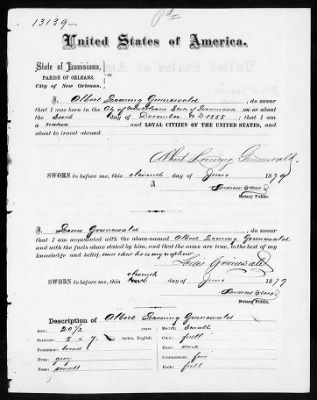 13139
United States of America.
State of Louisiana,
PARISH OF ORLEANS,
City of New Orleans
I, Albert Grunewald, do swear
that I was born in the City of New Orleans State of Louisiana on
the day of December A.D. 1858; that I am
a and LOYAL CITIZEN OF THE UNITED STATES, and
about to travel abroad
Albert Grunewald
SWORN to before me, this eleventh day of June 1879
Notary Public.
I, Louis Grunewald, do swear
that I am acquainted with the above-named Albert Grunewald
and with the facts above stated by him, and that the same are true, to the best of my
knowledge and belief, that he is my nephew
Louis Grunewald
SWORN to before me, this eleventh day of June 1879
Notary Public.
Description of Albert Grunewald
AGE: 20½ MOUTH: small
STATURE: 5 " 7 inches, English. CHIN: full
FOREHEAD: HAIR:
EYES: grey COMPLEXION: fair
NOSE: small FACE: full